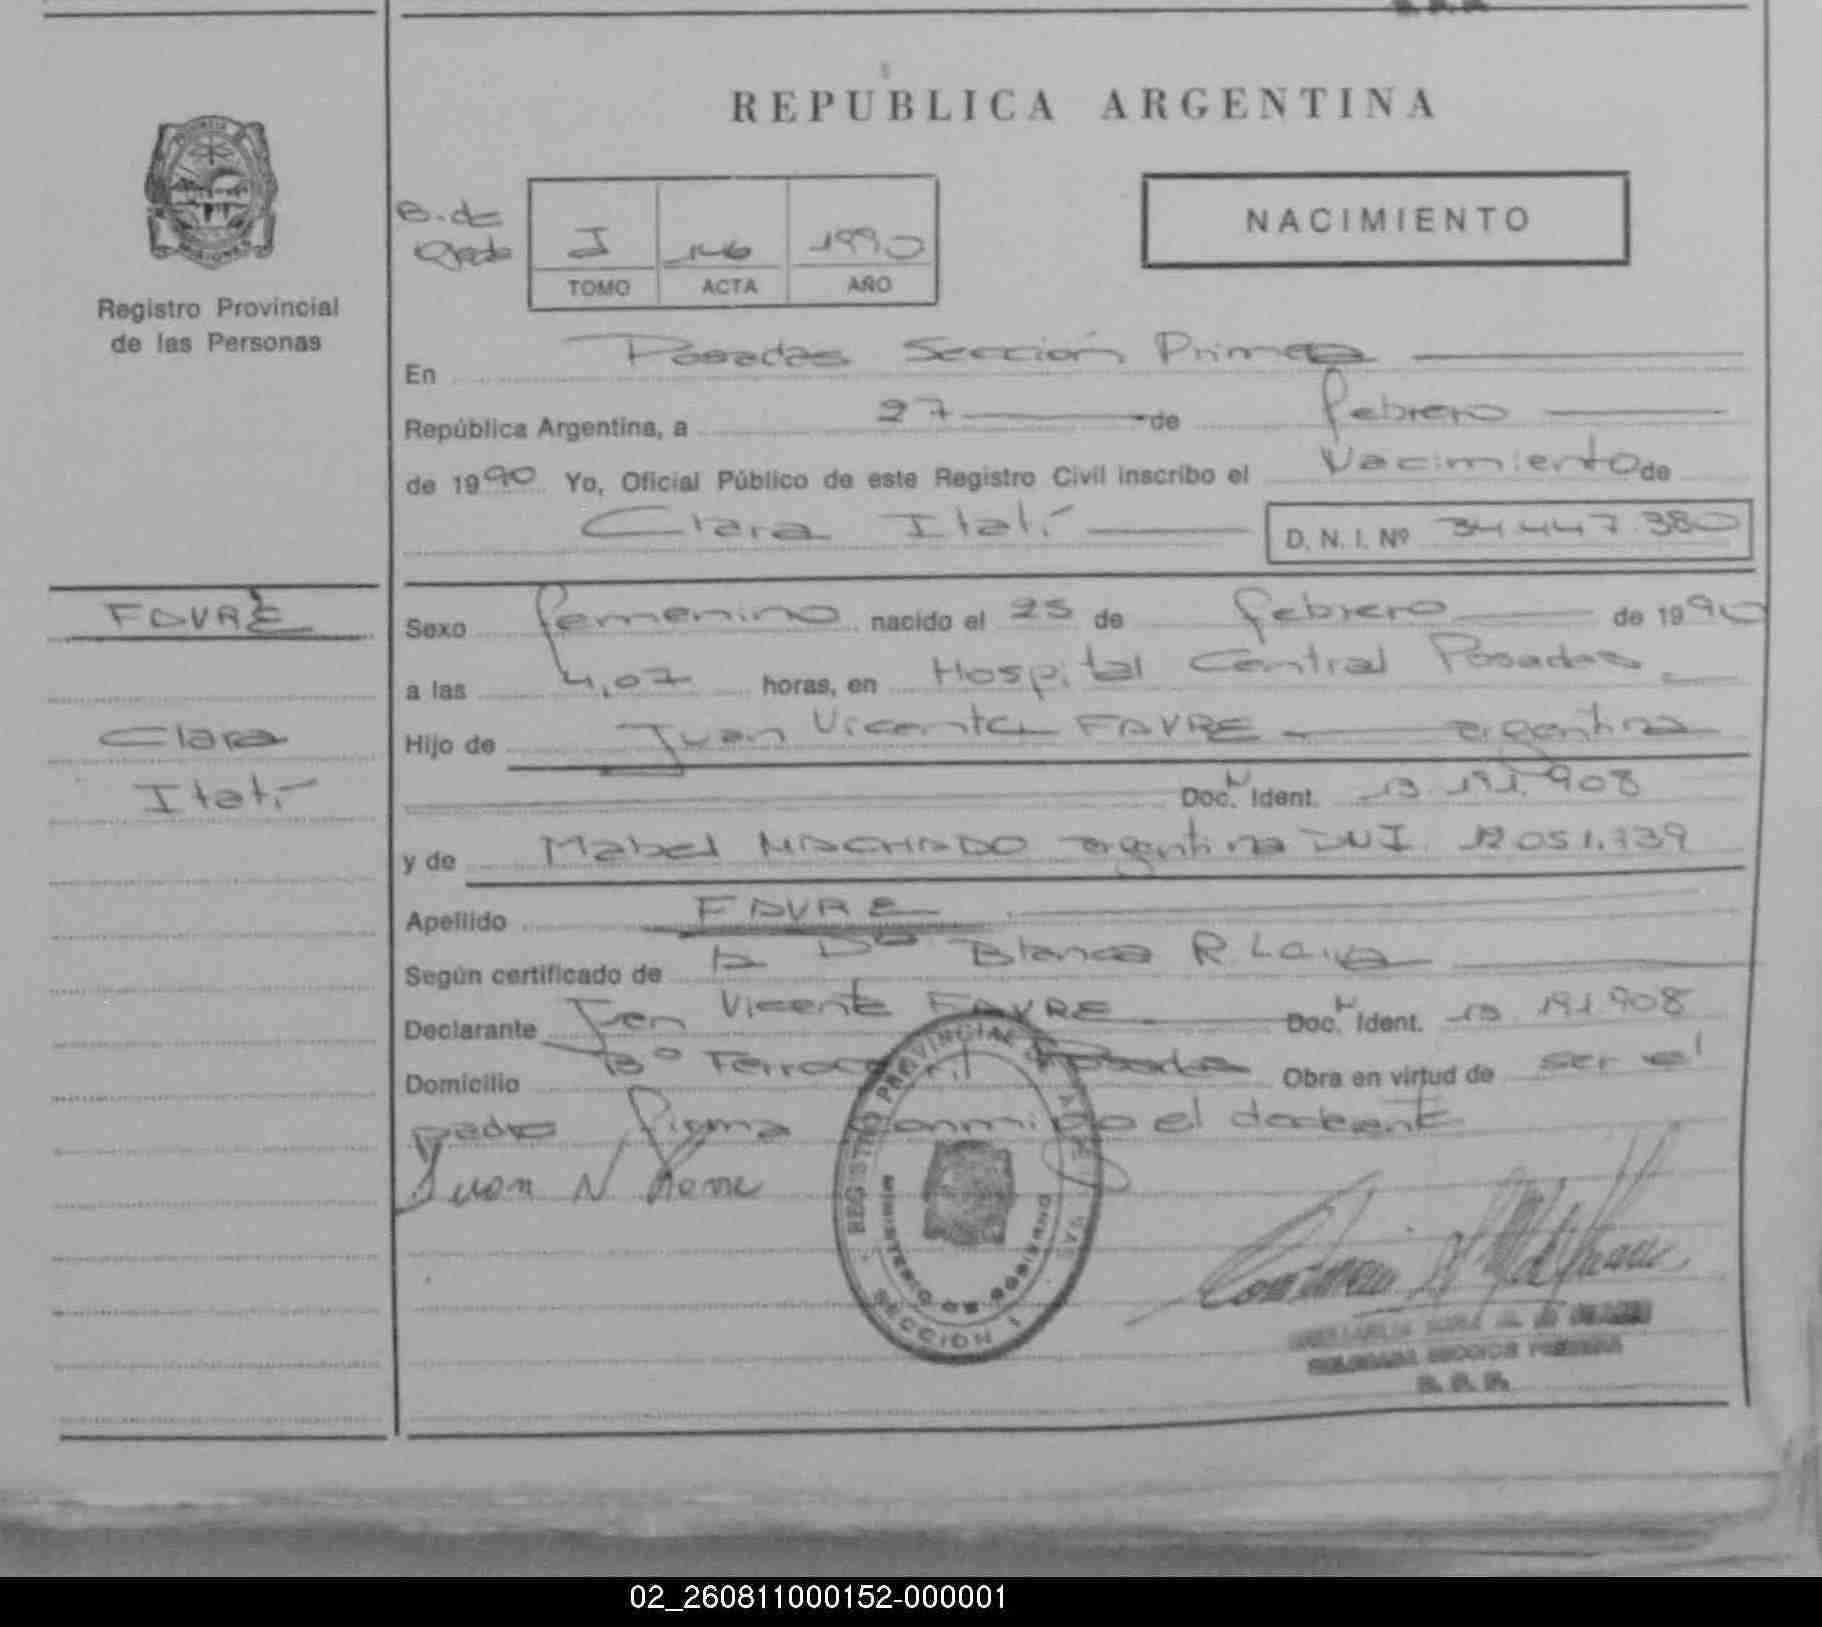 REPUBLICA ARGENTINA
NACIMIENTO
B. de
I 146 1990
TOMO ACTA AÑO
Registro Provincial
de las Personas
En Posadas Sección Primera
República Argentina, a 27 de febrero
de 1990 Yo, Oficial Público de este Registro Civil inscribo el Nacimiento de
Clara Itatí D. N. I. Nº 34.447.380
FAVRE
Clara
Itatí
Sexo femenino nacido el 25 de febrero de 1990
a las 4,07 horas, en Hospital Central Posadas
Hijo de Juan Vicente FAVRE argentina
Doc. Ident. 13.191.908
y de Mabel MACHADO argentina DNI. 12.051.739
Apellido FAVRE
Según certificado de la Dra Blanca R.
Declarante Juan Vicente FAVRE Doc. Ident. 13.191.908
Domicilio Bº Ferrocarril Posadas Obra en virtud de ser el
padre firma conmigo el declarante
Juan
REGISTRO PROVINCIAL DE LAS PERSONAS
MINISTERIO DE GOBIERNO
SECCION 1
02_260811000152-000001